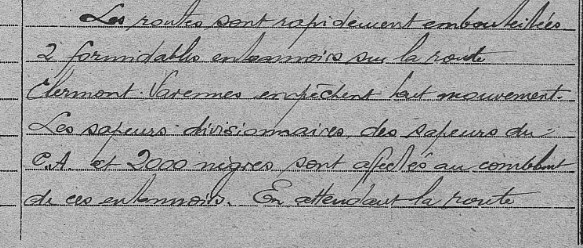 Les routes sont rapidement embouteillées
2 formidables entonnoirs sur la route
Clermont-Varennes empêchent tout mouvement.
Les sapeurs divisionnaires, des sapeurs du
C.A et 2000 nègres sont affectés au comblement
de ces entonnoirs. En attendant la route